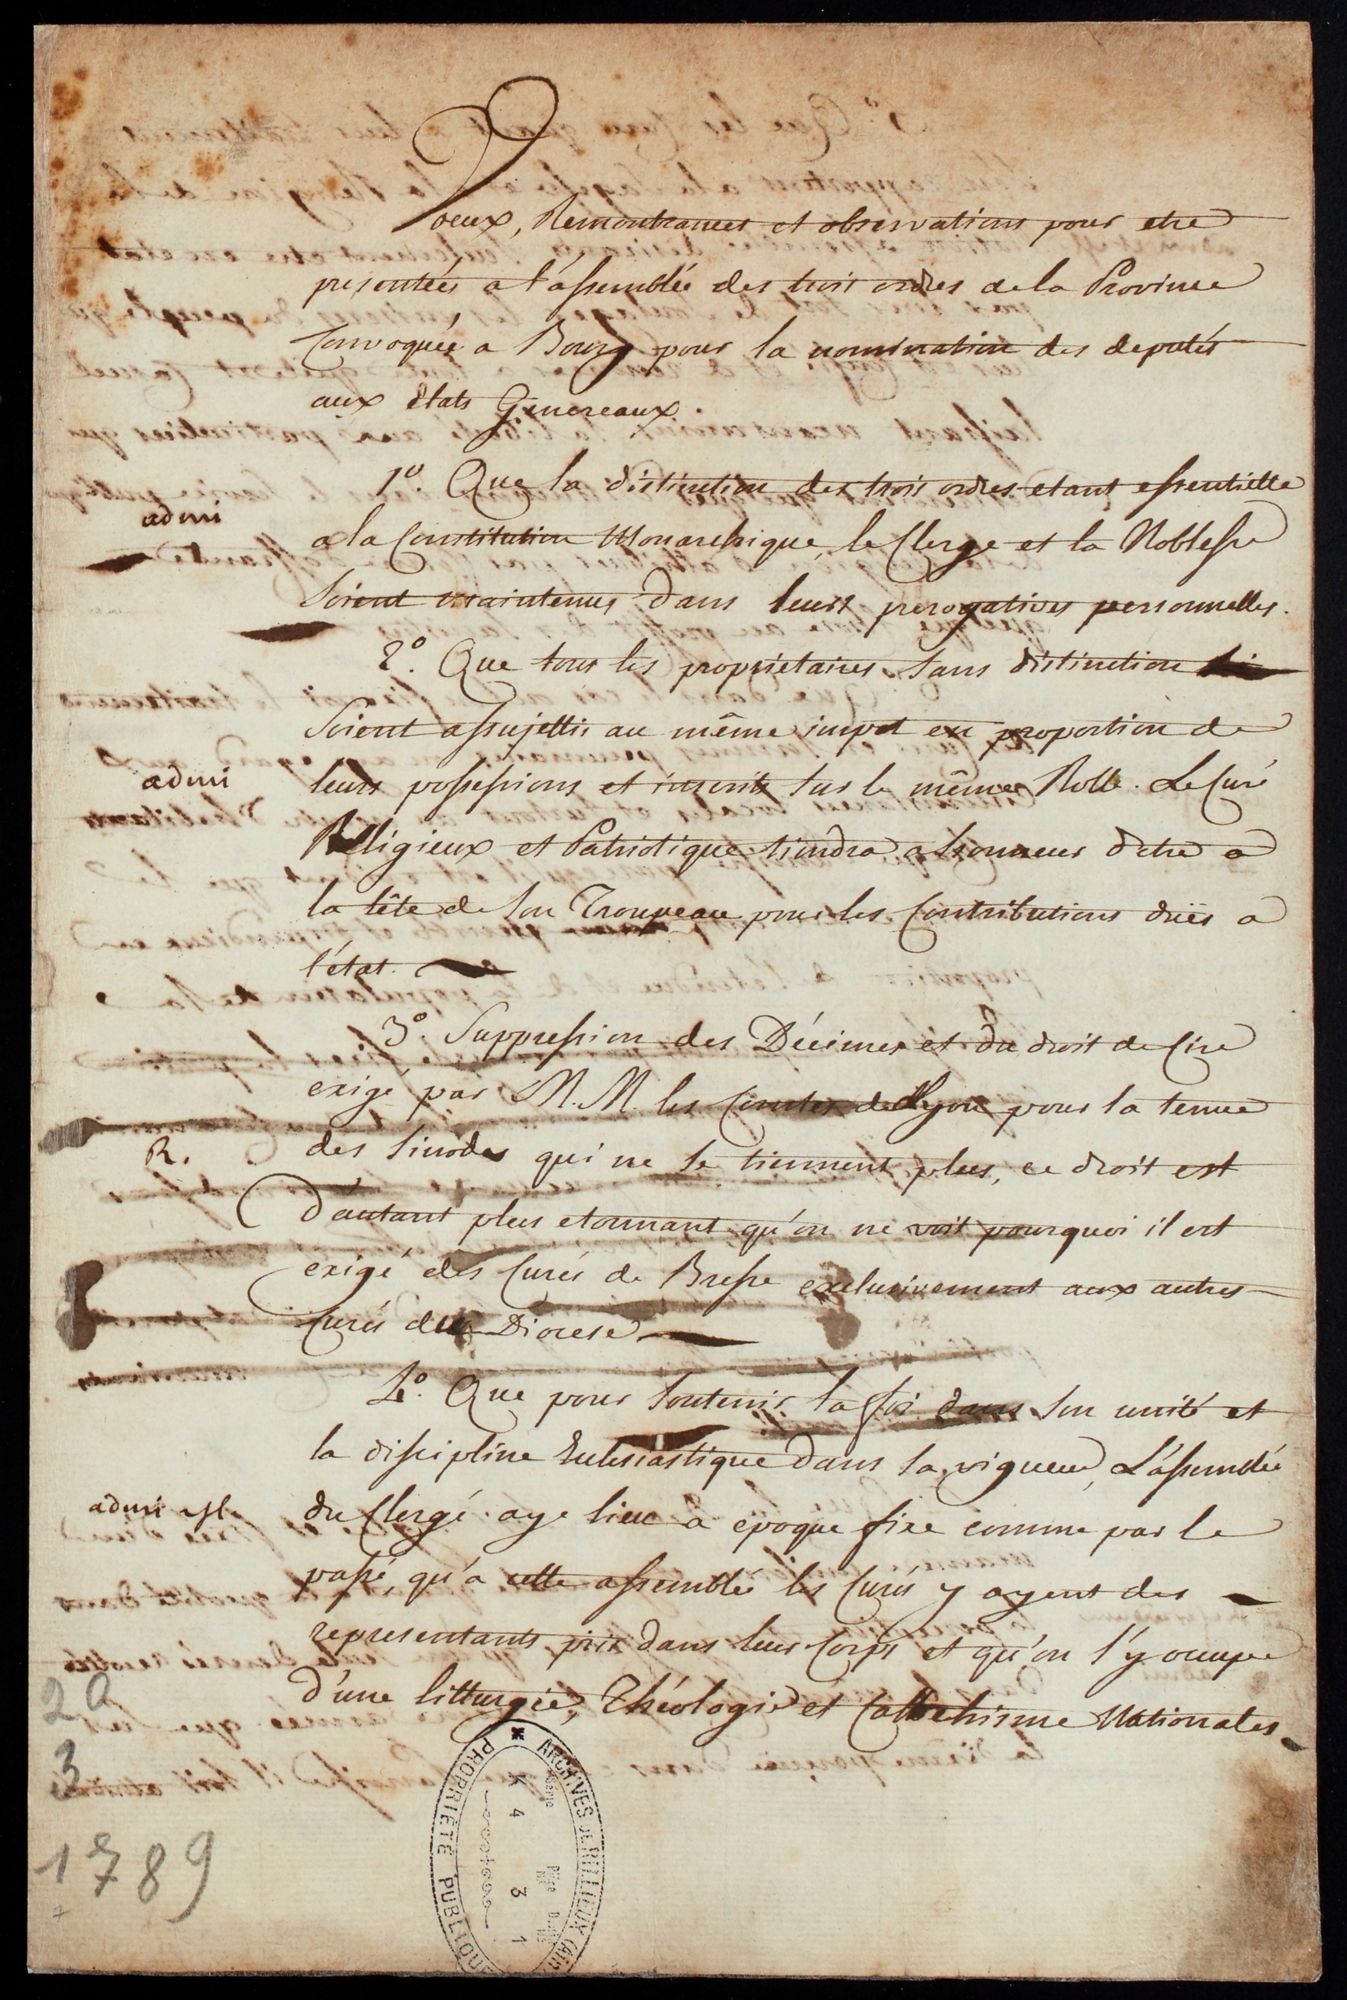 Voeux, Remontrances et observations pour etre
presentées a l'assemblée des trois ordres de la Province
Convoquée a Bourg pour la nomination des deputés
aux états Genereaux.
1º. Que la distinction des trois ordres etant essentielle
admi
a la Constitution Monarchique, le Clergé et la Noblesse
Soient maintenus dans leurs prerogatives personnelles.
2º. Que tous les proprietaires sans distinction
Soient assujettis au même impot en proportion de
admi
leurs possessions et inscrits sur le même Rolle. Le Curé
Religieux et Patriotique tiendra a honneur d'etre a
la tête de son Troupeau pour les Contributions duës a
l'état.
3º. Suppression des Décimes et du droit de Cire
exigé par M.M. les Comtes de Lyon pour la tenue
R.
des sinodes qui ne se tiennent plus, ce droit est
d'autant plus etonnant qu'on ne voit pourquoi il est
exigé des Curés de Bresse exclusivement aux autres
Curés du Diocese.
4º. Que pour soutenir la foi dans son unité et
la discipline Eclesiastique dans sa vigueur, L'assemblée
admi
du Clergé aye lieu a epoque fixe comme par le
passé, qu'a cette assemblé les Curés y ayent des
representants pris dans leur Corps et qu'on s'y occupe
d'une litturgie, Théologie et Cathechisme Nationales
20
3
1789
ARCHIVES DE RILLIEUX (AIN
PROPRIÉTÉ PUBLIQUE
Série
K 4 3 1